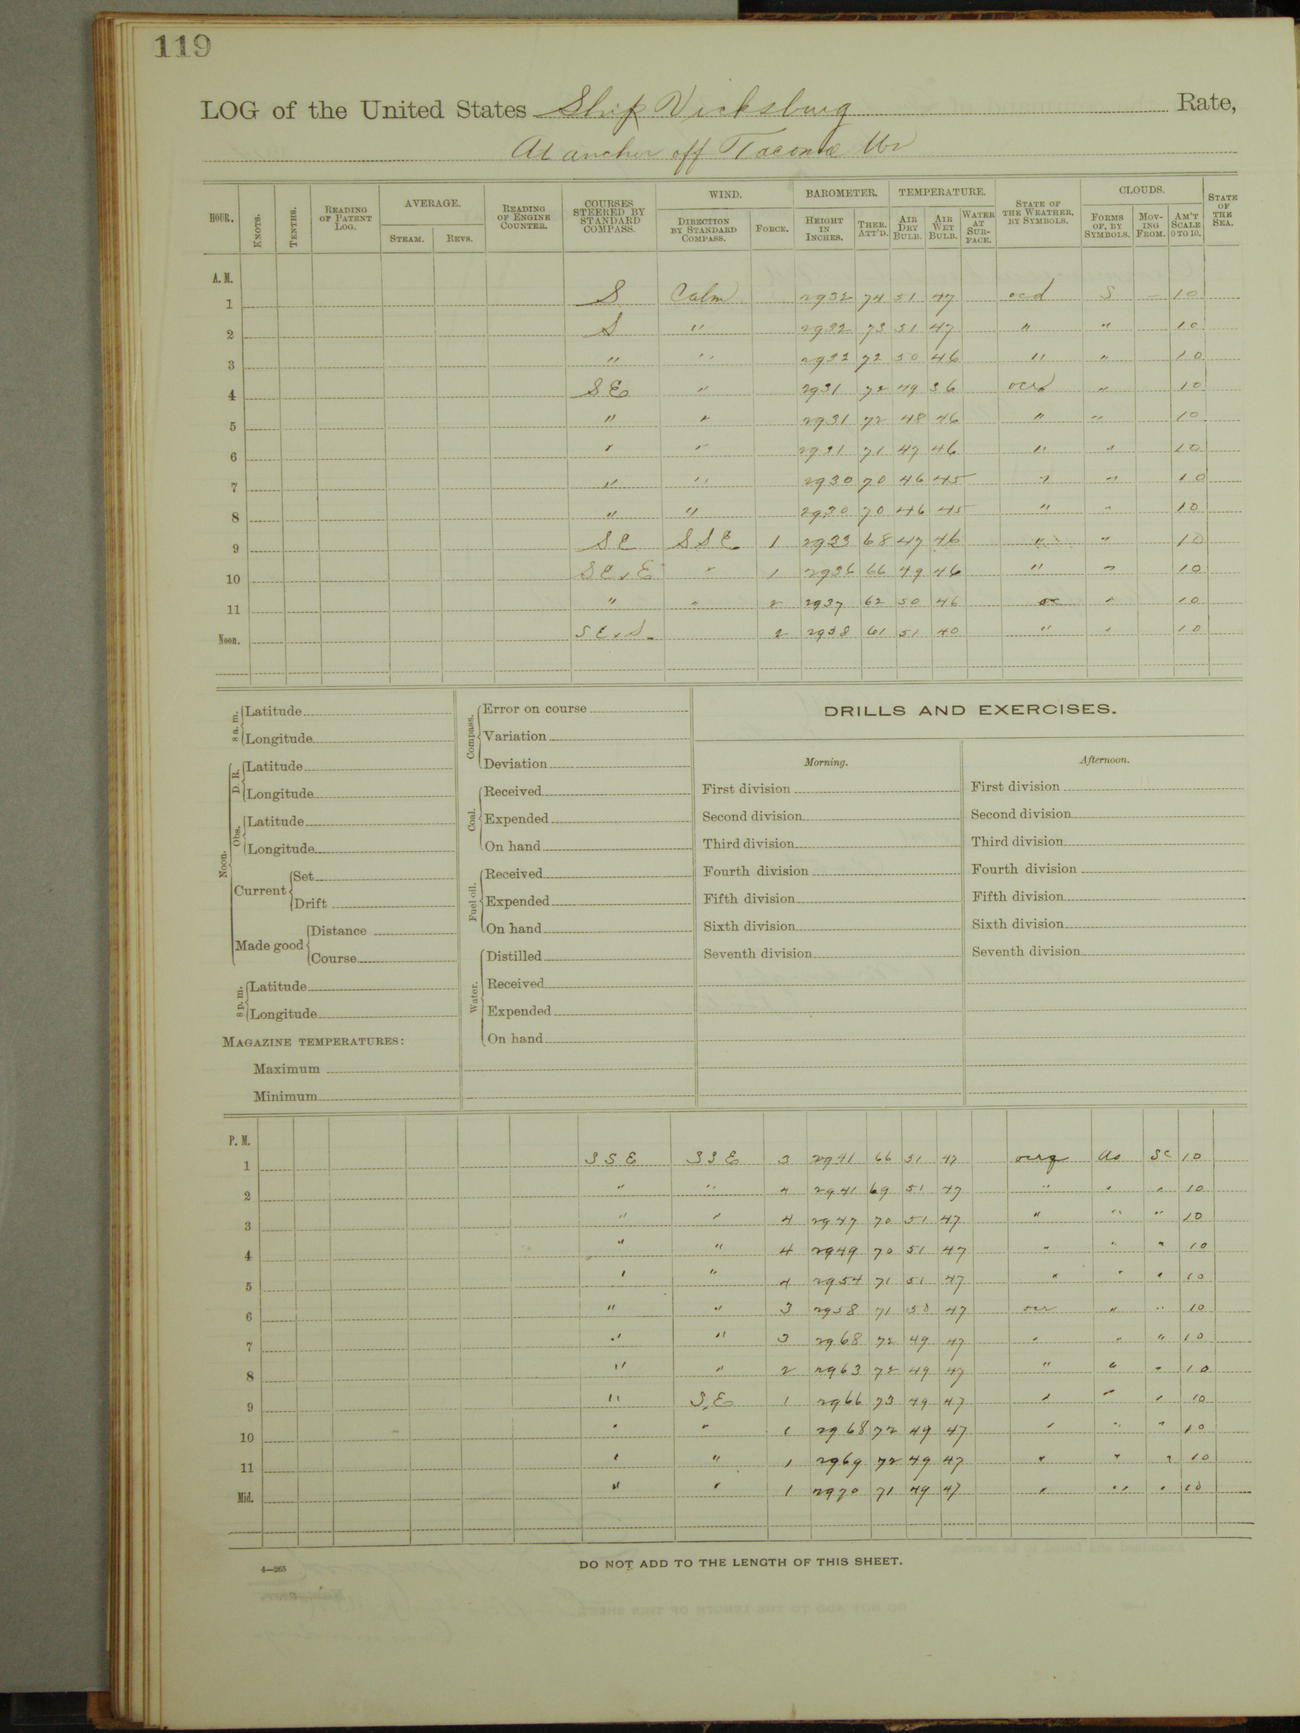 119
LOG of the United States Ship Vicksburg Rate,
At anchor off Tacoma Wn
HOUR. KNOTS. TENTHS. READING OF PATENT LOG. AVERAGE. STEAM. REVS. READING OF ENGINE COUNTER. COURSES STEERED BY STANDARD COMPASS. WIND. DIRECTION BY STANDARD COMPASS. FORCE. BAROMETER. HEIGHT IN INCHES. THER. ATT'D. TEMPERATURE. AIR DRY BULB. AIR WET BULB. WATER AT SURFACE. STATE OF THE WEATHER, BY SYMBOLS. CLOUDS. FORMS OF, BY SYMBOLS. MOVING FROM. AM'T SCALE 0 TO 10. STATE OF THE SEA.
A. M.
1 S Calm 2932 74 51 47 ocd S - 10
2 S " 2932 73 51 47 " " 10
3 " " 2932 72 50 46 " " 10
4 SE " 2931 72 49 36 " 10
5 " " 2931 72 48 46 " " 10
6 " " 2931 71 47 46 " " 10
7 " " 2930 70 46 45 " " 10
8 " " 2930 70 46 45 " " 10
9 SE SSE 1 2933 68 47 46 " " 10
10 SExE " 1 2936 66 49 46 " " 10
11 " " 2 2937 62 50 46 oc " 10
Noon. SExS. 2 2938 61 51 40 " " 10
8 a. m. Latitude
Longitude
Noon. D. R. Latitude
Longitude
Obs. Latitude
Longitude
Current Set
Drift
Made good Distance
Course
8 p. m. Latitude
Longitude
MAGAZINE TEMPERATURES:
Maximum
Minimum
Compass. Error on course
Variation
Deviation
Coal. Received
Expended
On hand
Fuel oil. Received
Expended
On hand
Water. Distilled
Received
Expended
On hand
DRILLS AND EXERCISES.
Morning. Afternoon.
First division First division
Second division Second division
Third division Third division
Fourth division Fourth division
Fifth division Fifth division
Sixth division Sixth division
Seventh division Seventh division
P. M.
1 SSE SSE 3 2941 66 51 47 ocrq SE 10
2 " " 4 2941 69 51 47 " " " 10
3 " " 4 2947 70 51 47 " " " 10
4 " " 4 2949 70 51 47 " " " 10
5 " " 4 2954 71 51 47 " " " 10
6 " " 3 2958 71 50 47 ocr " " 10
7 " " 3 2968 72 49 47 " " " 10
8 " " 2 2963 72 49 47 " " " 10
9 " S.E 1 2966 73 49 47 " " " 10
10 " " 1 2968 72 49 47 " " " 10
11 " " 1 2969 72 49 47 " " " 10
Mid. " " 1 2970 71 49 47 " " " 10
4—265
DO NOT ADD TO THE LENGTH OF THIS SHEET.